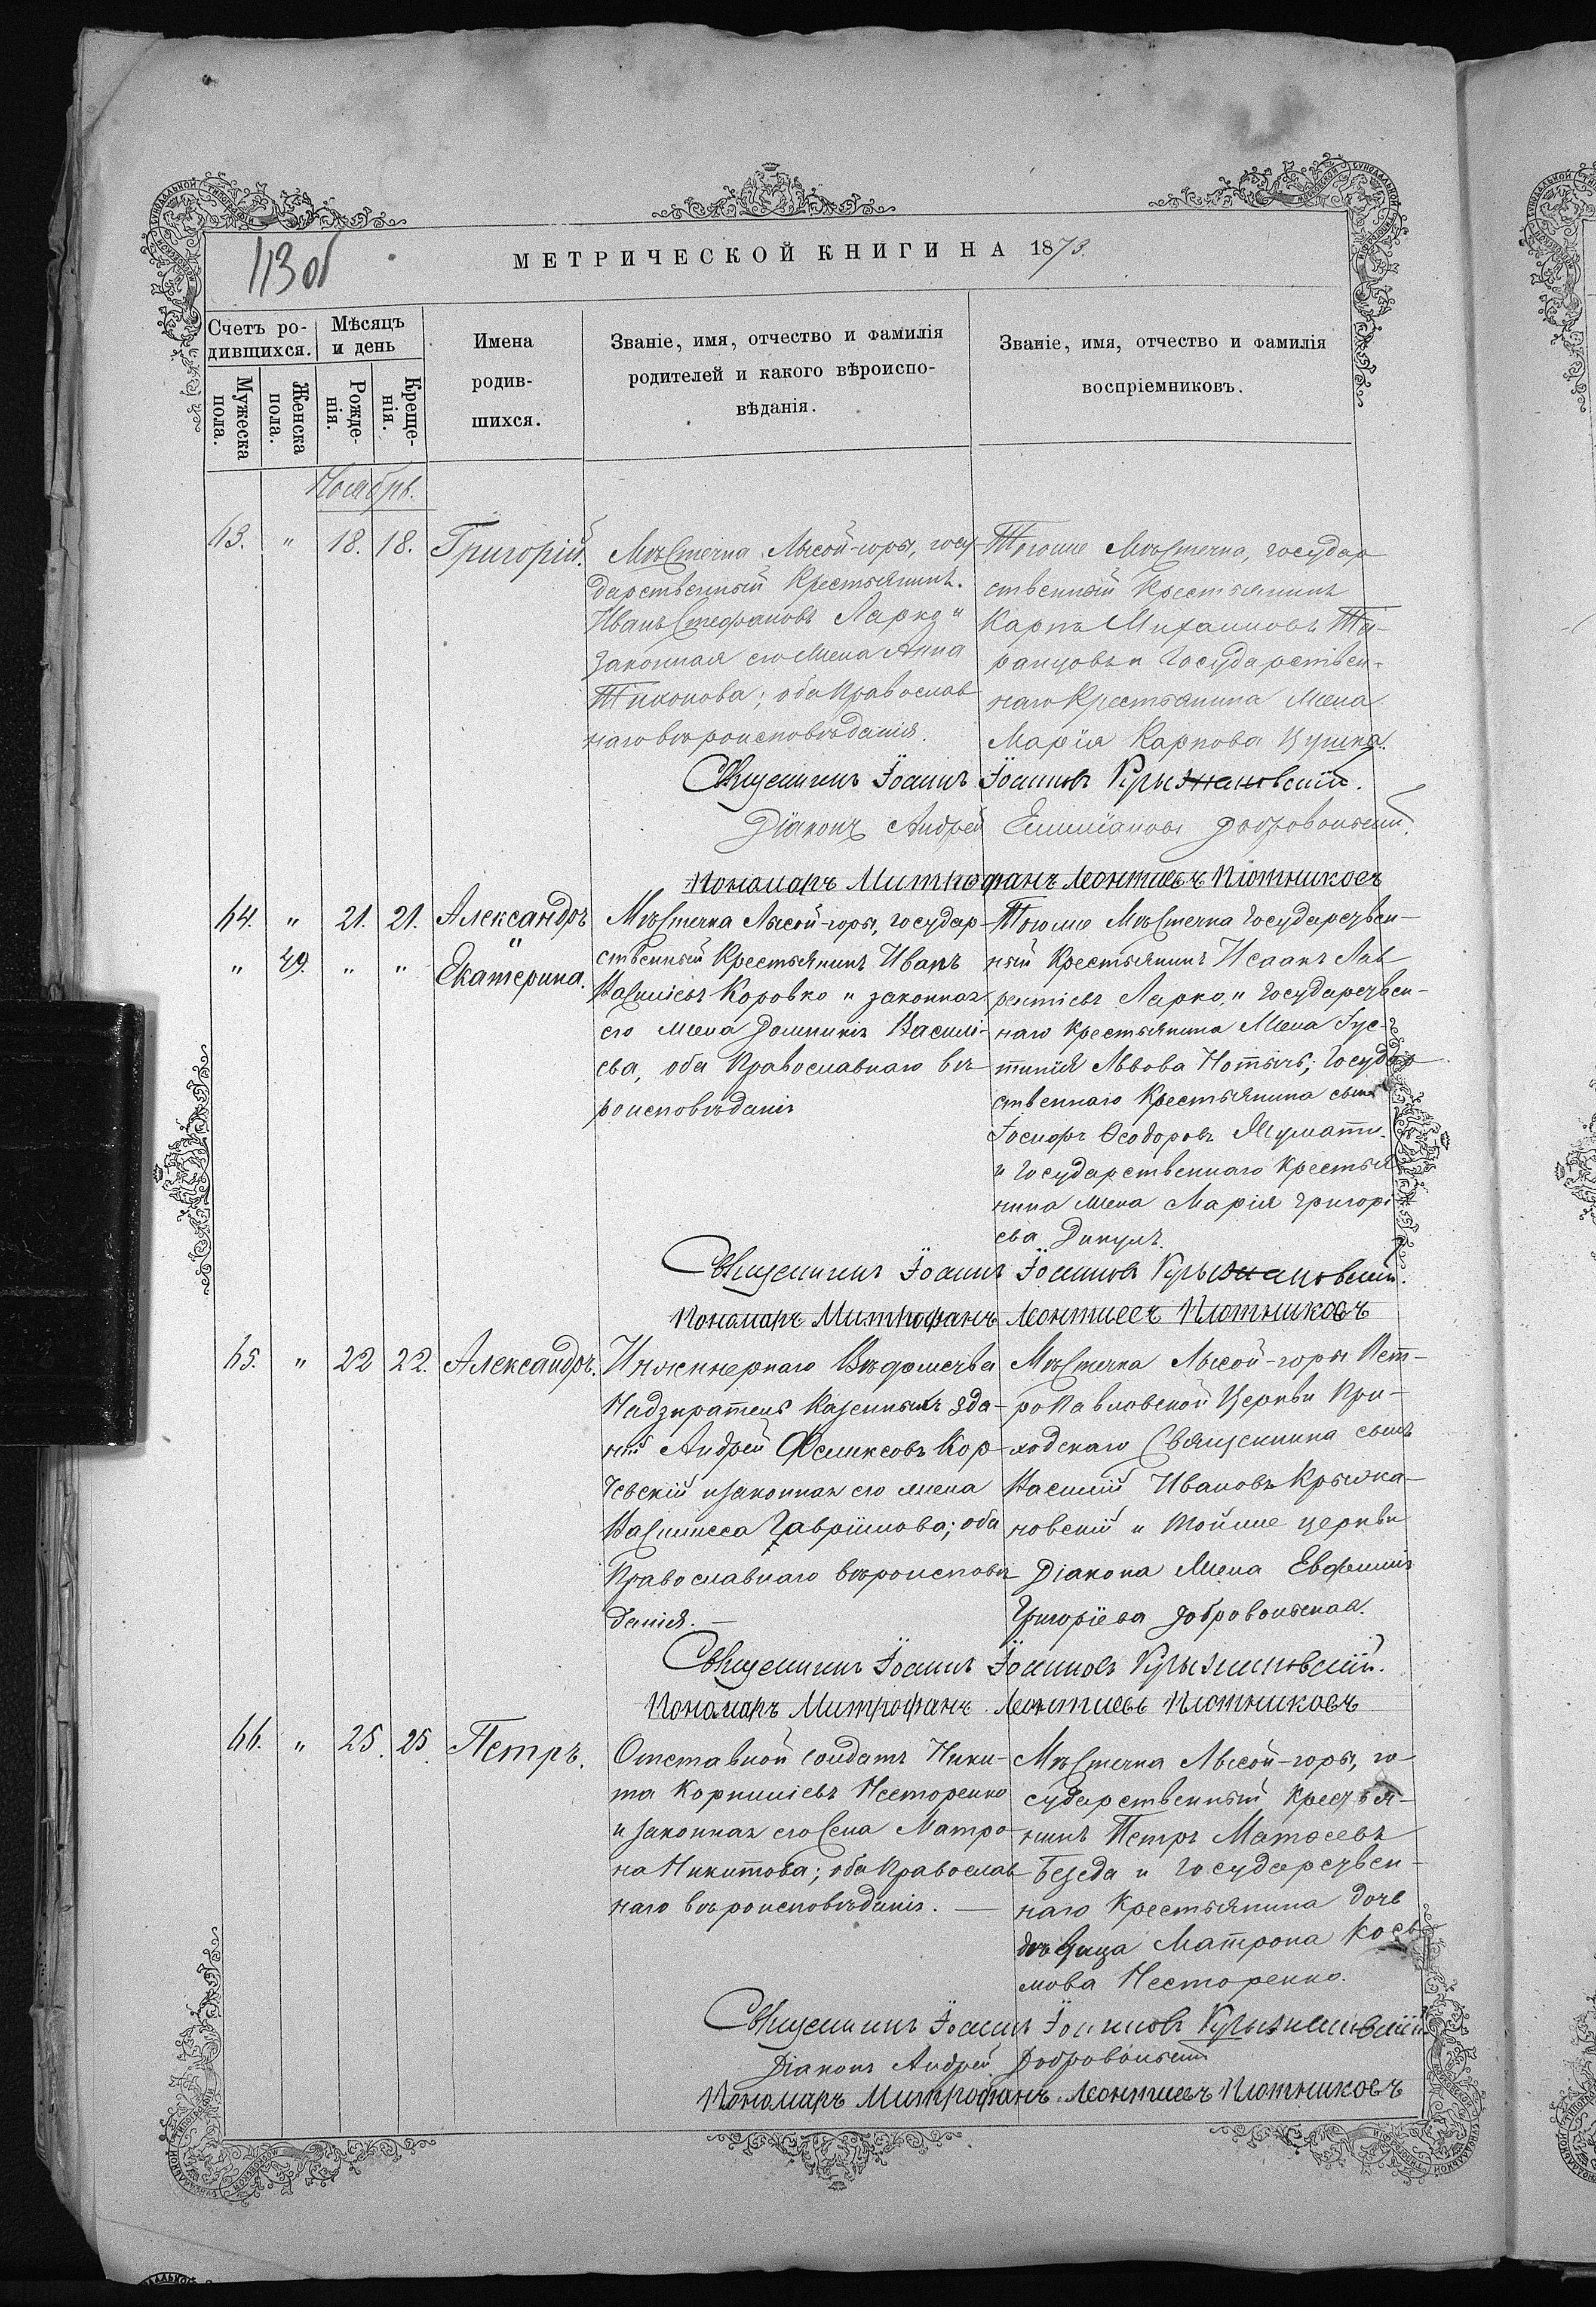 113 об
МЕТРИЧЕСКОЙ КНИГИ НА 1873.
Счетъ ро-
дившихся.
Мѣсяцъ
и день
Мужеска
пола.
Женска
пола.
Рожде-
нія.
Креще-
нія.
Имена
родив-
шихся.
Званіе, имя, отчество и фамилія
родителей и какого вѣроиспо-
вѣданія.
Званіе, имя, отчество и фамилія
воспріемниковъ.
Ноябрь.
63. " 18. 18. Григорій.
Мѣстечка Лысой-горы, госу-
дарственный Крестьянинъ
Иванъ Стефановъ Ларко и
законная его жена Анна
Тихонова; оба Православ
наго вѣроисповѣданія.
Тогоже Мѣстечка, государ
ственный Крестьянинъ
Карпъ Михаиловъ Та-
ранцовъ и Государствен-
наго Крестьянина жена
Марія Карпова Цушка.
Священникъ Іоаннъ Іоанновъ Крыжановскій.
Діаконъ Андрей Емиліановъ Добровольскій.
Пономарь Митрофанъ Леонтиевъ Плотниковъ
64. " 21. 21. Александръ
" 49. " " Екатерина.
Мѣстечка Лысой-горы, государ-
ственный Крестьянинъ Иванъ
Василіевъ Коровко и законная
его жена Домникія Василі-
ева, оба Православнаго вѣ-
роисповѣданія
Тогоже Мѣстечка Государствен-
ный Крестьянинъ Исаакъ Лав
рентіевъ Ларко, и Государствен-
наго Крестьянина жена Іус-
тинія Львова Нотычъ; Государ
ственнаго Крестьянина сынъ
Іосифъ Ѳеодоровъ
и Государственнаго Крестья
нина жена Марія Григорі-
ева Дикулъ.
Священникъ Іоаннъ Іоанновъ Крыжановскій.
Пономарь Митрофанъ Леонтиевъ Плотниковъ
65. " 22 22. Александръ.
Инженернаго Вѣдомства
Надзиратель Казенныхъ зда-
ній Андрей Феликсовъ Кор-
чевскій и законная его жена
Василисса Гавріилова; оба
Православнаго вѣроисповѣ
данія. —
Мѣстечка Лысой-горы Пет-
ро Павловской Церкви При-
ходскаго Священника сынъ
Василій Ивановъ Крыжа-
новскій и тойже церкви
Діакона жена Евфимія
Григоріева Добровольская.
Священникъ Іоаннъ Іоанновъ Крыжановскій.
Пономарь Митрофанъ Леонтиевъ Плотниковъ
66. " 25. 25. Петръ.
Отставной солдатъ Ники-
та Корниліевъ Несторенко
и законная его жена Матро-
на Никитова; оба Православ
наго вѣроисповѣданія. —
Мѣстечка Лысой-горы, го-
сударственный Крестья-
нинъ Петръ Матѳеевъ
Безеда и Государствен-
наго Крестьянина дочь
дѣвица Матрона Кось
мова Несторенко.
Священникъ Іоаннъ Іоанновъ Крыжановскій
Діаконъ Андрей Добровольскій
Пономарь Митрофанъ Леонтиевъ Плотниковъ